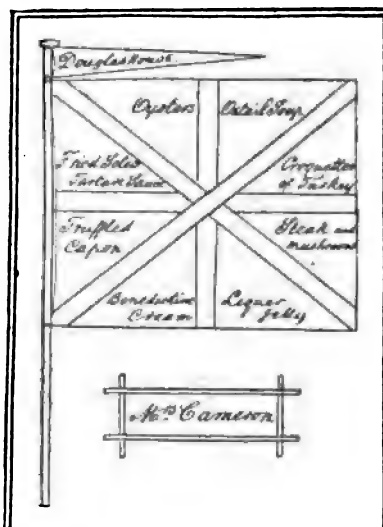 Douglas House
Oysters
Oxtail Soup
Fried Soles
Tartare Sauce
Croquettes
of Turkey
Truffled
Capon
Steak and
mushrooms
Benedictine
Cream
Liquer
Jelly
Mrs Cameron